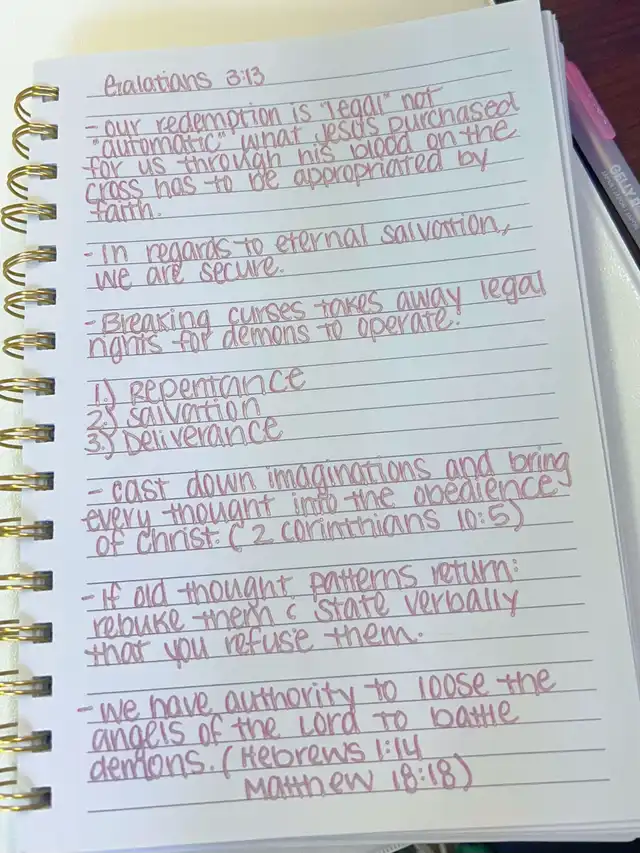 Galatians 3:13
- our redemption is "legal" not
"automatic" what Jesus purchased
for us through his blood on the
cross has to be appropriated by
faith.
- In regards to eternal salvation,
we are secure.
- Breaking curses takes away legal
rights for demons to operate.
1.) Repentance
2.) Salvation
3.) Deliverance
- Cast down imaginations and bring
every thought into the obedience
of Christ. (2 Corinthians 10:5)
- If old thought patterns return:
rebuke them & state verbally
that you refuse them.
- We have authority to loose the
angels of the Lord to battle
demons. (Hebrews 1:14
Matthew 18:18)
GELLY R